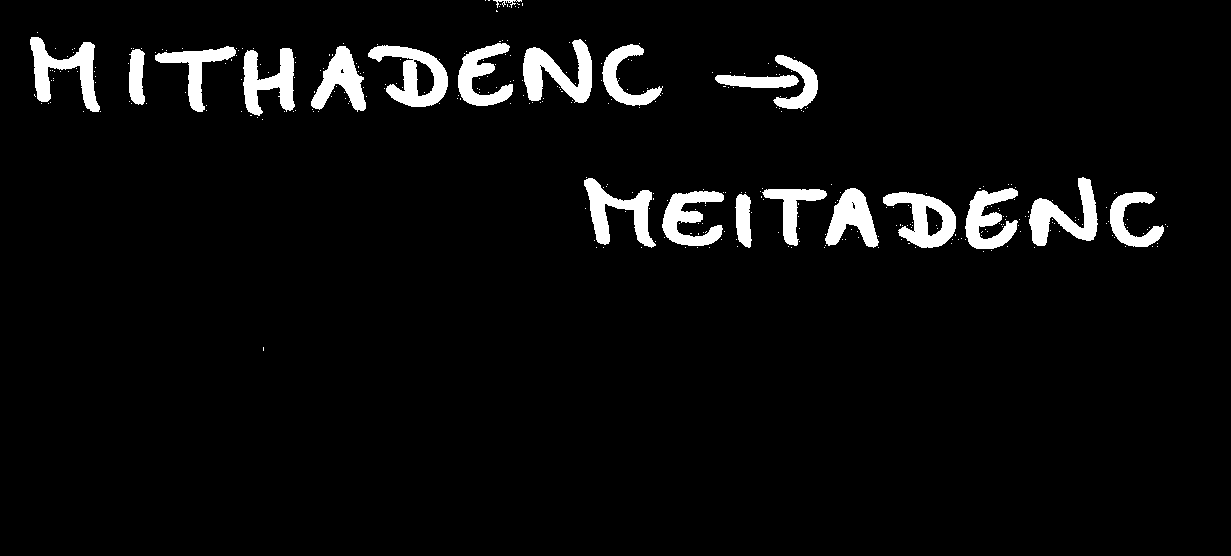 MITHADENC →
MEITADENC